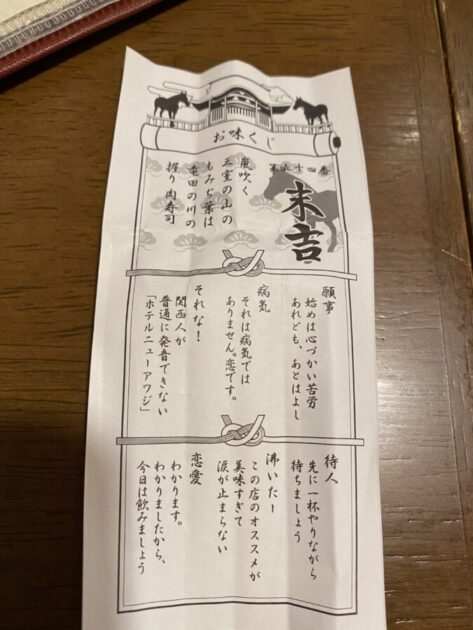 お味くじ
第五十四番
末吉
嵐吹く
三室の山の
もみぢ葉は
竜田の川の
握り肉寿司
願事
始めは心づかい苦労
あれども、あとはよし
病気
それは病気では
ありません。恋です。
それな！
関西人が
普通に発音できない
「ホテルニューアワジ」
待人
先に一杯やりながら
待ちましょう
沸いたー
この店のオススメが
美味すぎて
涙が止まらない
恋愛
わかります。
わかりましたから、
今日は飲みましょう